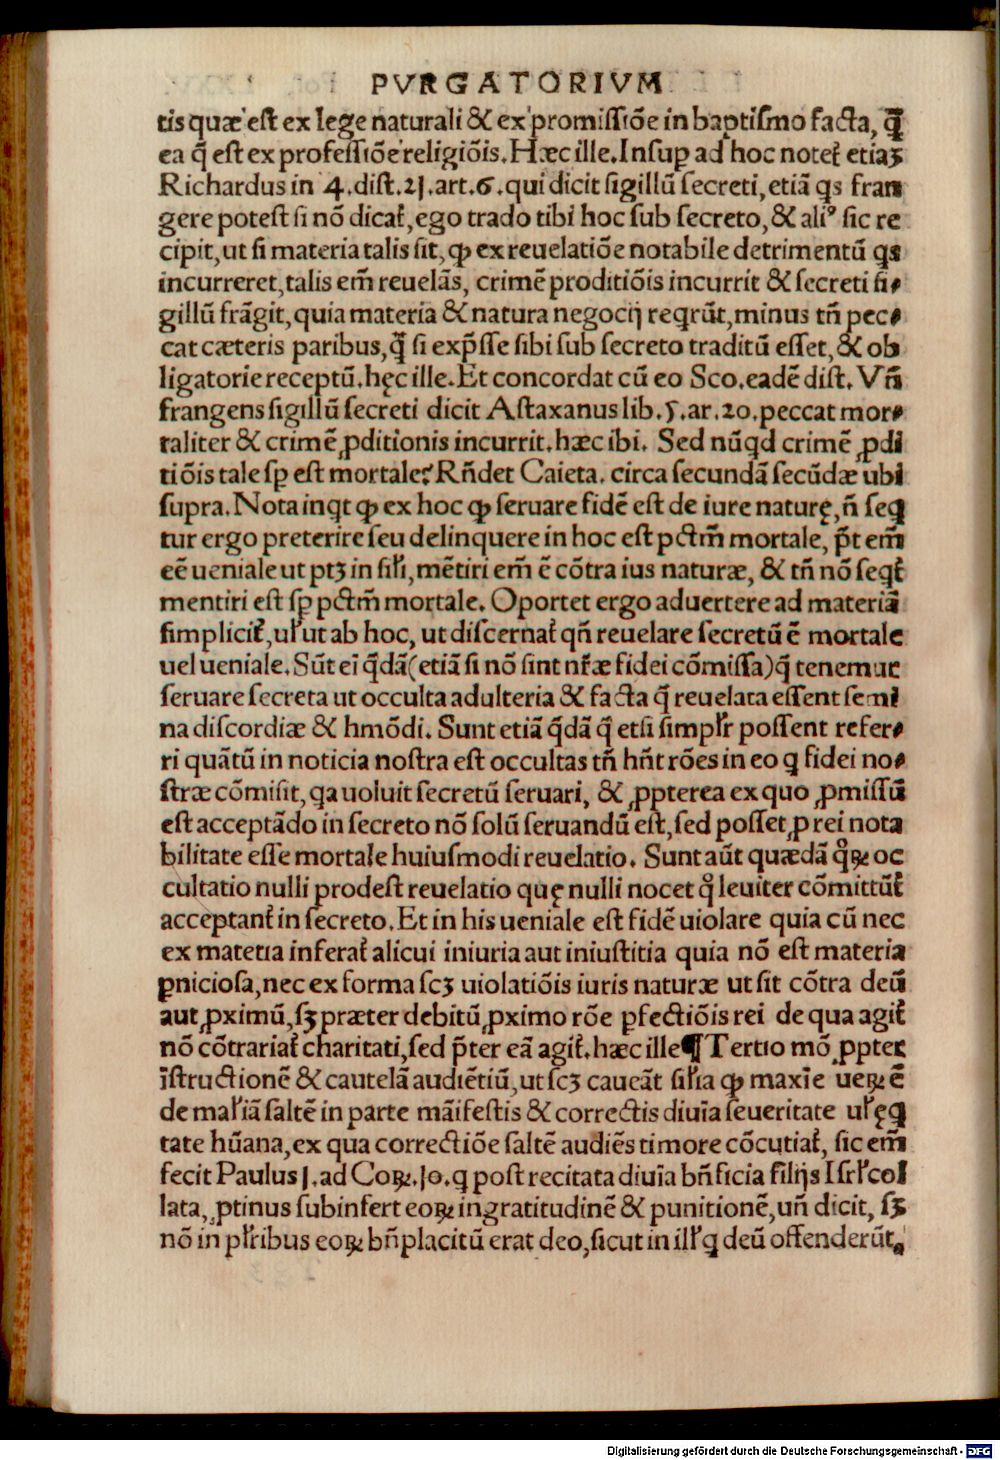 PVRGATORIVM
tis quæ est ex lege naturali & ex promissiõe in baptismo facta, q̃
ea q̃ est ex professiõe religiõis. Hæc ille. Insup ad hoc notet᷑ etiaꝫ
Richardus in 4. dist. 21. art. 6. qui dicit sigillũ secreti, etiã qs fran
gere potest si nõ dicat᷑, ego trado tibi hoc sub secreto, & aliꝰ sic re
cipit, ut si materia talis sit, ꝙ ex reuelatiõe notabile detrimentũ qs
incurreret, talis em̃ reuelãs, crimẽ proditiõis incurrit & secreti si⸗
gillũ frãgit, quia materia & natura negocij reqrũt, minus tñ pec⸗
cat cæteris paribus, q̃ si exp̃sse sibi sub secreto traditũ esset, & ob
ligatorie receptũ. hęc ille. Et concordat cũ eo Sco. eadẽ dist. Vñ
frangens sigillũ secreti dicit Astaxanus lib. 5. ar. 20. peccat mor⸗
taliter & crimẽ ꝓditionis incurrit. hæc ibi. Sed nũqd crimẽ ꝓdi
tiõis tale sp̱ est mortale? Rñdet Caieta. circa secundã secũdæ ubi
supra. Nota inqt ꝙ ex hoc ꝙ seruare fidẽ est de iure naturę, ñ seq̃
tur ergo preterire seu delinquere in hoc est pctm̃ mortale, p̃t em̃
eẽ ueniale ut ptꝫ in sil̃i, mẽtiri em̃ ẽ cõtra ius naturæ, & tñ nõ seqt᷑
mentiri est sp̱ pctm̃ mortale. Oportet ergo aduertere ad materiã
simplicit᷑, ul̃ ut ab hoc, ut discernat᷑ qñ reuelare secretũ ẽ mortale
uel ueniale. Sũt ei̅ q̃dã (etiã si nõ sint nr̃æ fidei cõmissa) q̃ tenemur
seruare secreta ut occulta adulteria & facta q̃ reuelata essent semi
na discordiæ & hmõdi. Sunt etiã q̃dã q̃ etsi simpl̃r possent refer⸗
ri quãtũ in noticia nostra est occultas tñ hñt rões in eo q fidei no⸗
stræ cõmisit, qa uoluit secretũ seruari, & ꝓpterea ex quo ꝓmissũ
est acceptãdo in secreto nõ solũ seruandũ est, sed posset ꝓ rei nota
bilitate esse mortale huiusmodi reuelatio. Sunt aũt quædã qͦꝝ oc
cultatio nulli prodest reuelatio quę nulli nocet qͦ leuiter cõmittũt᷑
acceptant᷑ in secreto. Et in his ueniale est fidẽ uiolare quia cũ nec
ex matetia inferat᷑ alicui iniuria aut iniustitia quia nõ est materia
ꝑniciosa, nec ex forma scꝫ uiolatiõis iuris naturæ ut sit cõtra deũ
aut ꝓximũ, sꝫ præter debitũ ꝓximo rõe ꝑfectiõis rei de qua agit᷑
nõ cõtrariat᷑ charitati, sed p̃ter eã agit᷑. hæc ille ¶ Tertio mõ ꝓpter
i̅structionẽ & cautelã audiẽtiũ, ut scꝫ caueãt sil̃ia ꝙ maxi̅e ueꝝ ẽ
de mal̃iã saltẽ in parte mãifestis & correctis diui̅a seueritate ul̃ ęq̃
tate hũana, ex qua correctiõe saltẽ audiẽs timore cõcutiat᷑, sic em̃
fecit Paulus 1. ad Coꝝ. 10. q post recitata diui̅a bñficia filijs Isrl̃ col
lata, ꝓtinus subinfert eoꝝ ingratitudinẽ & punitionẽ, uñ dicit, sꝫ
nõ in pl̃ribus eoꝝ bñplacitũ erat deo, sicut in ill̃ q deũ offenderũt,
Digitalisierung gefördert durch die Deutsche Forschungsgemeinschaft - DFG